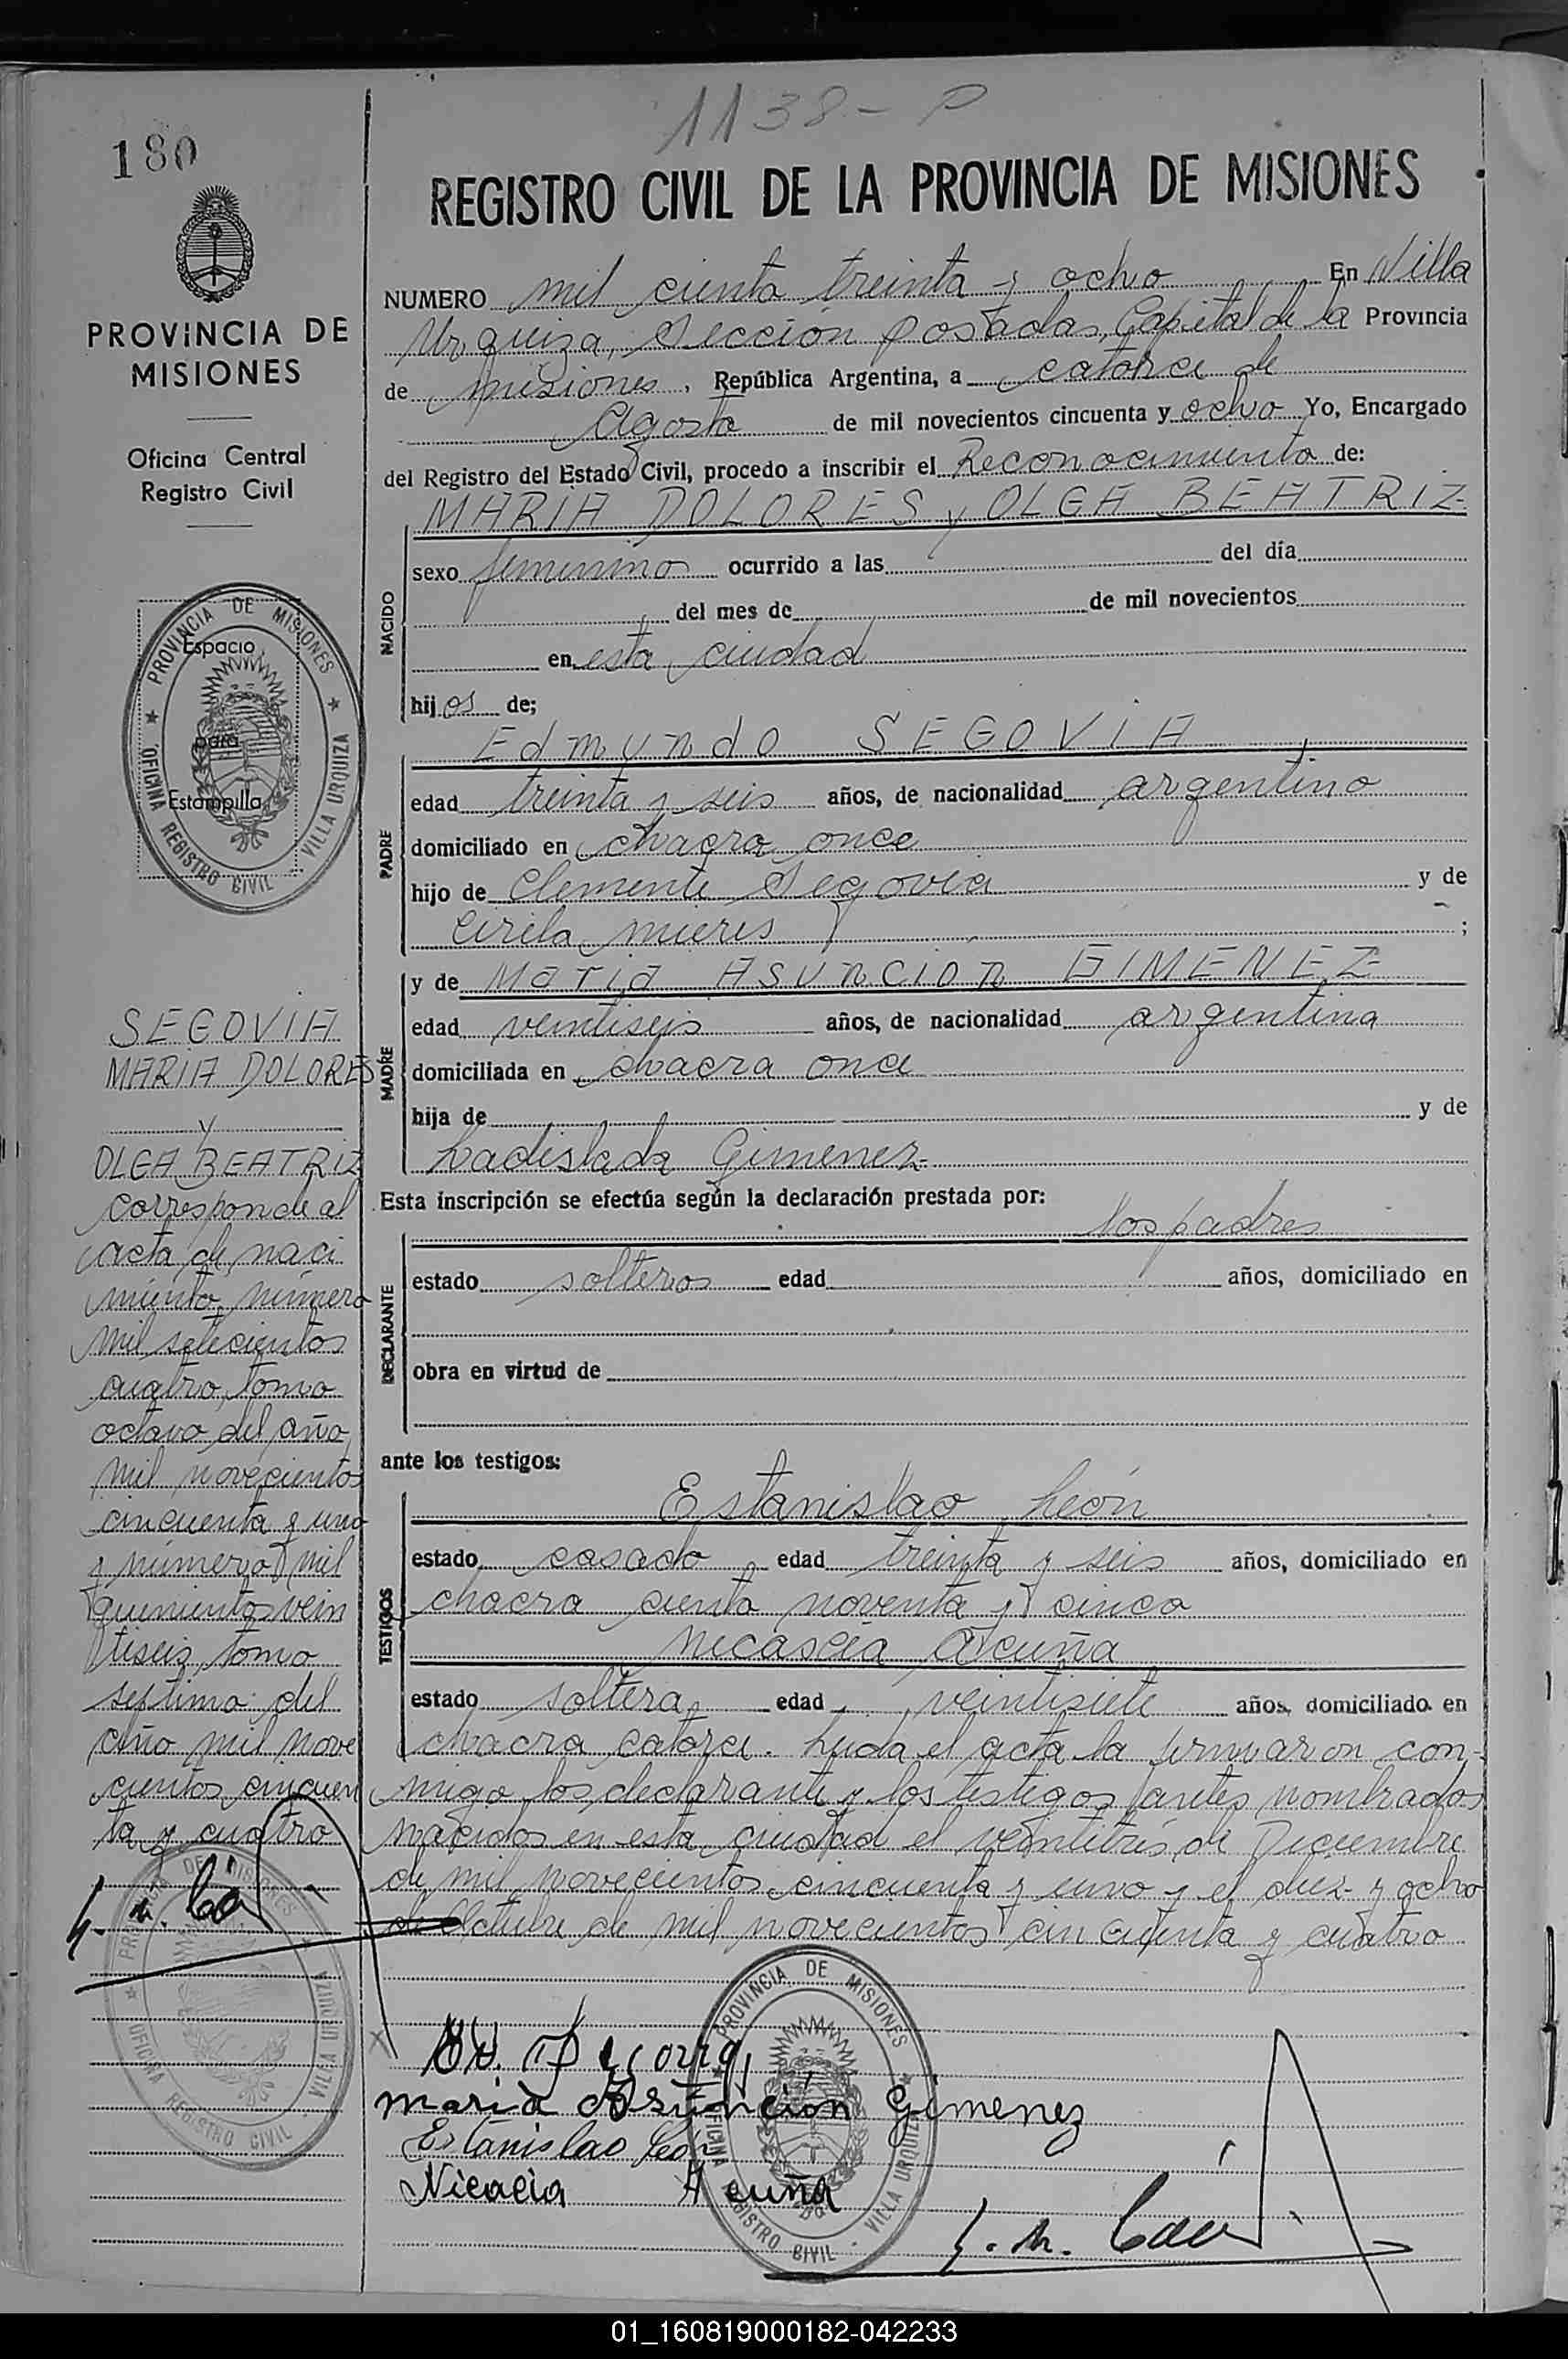 1138-P
180
REGISTRO CIVIL DE LA PROVINCIA DE MISIONES
PROVINCIA DE
MISIONES
Oficina Central
Registro Civil
PROVINCIA DE MISIONES
OFICINA REGISTRO CIVIL - VILLA URQUIZA
Espacio
para
Estampilla
NUMERO mil ciento treinta y ocho En Villa
Urquiza, Sección Posadas, Capital de la Provincia
de Misiones, República Argentina, a catorce de
Agosto de mil novecientos cincuenta y ocho Yo, Encargado
del Registro del Estado Civil, procedo a inscribir el Reconocimiento de:
NACIDO
MARIA DOLORES y OLGA BEATRIZ-
sexo femenino ocurrido a las del día
del mes de de mil novecientos
en esta ciudad
hijos de;
PADRE
Edmundo SEGOVIA
edad treinta y seis años, de nacionalidad argentino
domiciliado en chacra once
hijo de Clemente Segovia y de
Cirila Mieres ;
MADRE
y de Maria Asuncion GIMENEZ-
edad veintiseis años, de nacionalidad argentina
domiciliada en chacra once
hija de y de
Ladislada Gimenez-
Esta inscripción se efectúa según la declaración prestada por:
DECLARANTE
los padres
estado solteros edad años, domiciliado en
obra en virtud de
ante los testigos:
TESTIGOS
Estanislao León
estado casado edad treinta y seis años, domiciliado en
chacra ciento noventa y cinco
Nicasia Acuña
estado soltera edad veintisiete años, domiciliado en
chacra catorce. Leida el acta la firmaron con-
migo los declarante y los testigos antes nombrados
nacidos en esta ciudad el veintitrés de Diciembre
de mil novecientos cincuenta y uno y el diez y ocho
de Octubre de mil novecientos cincuenta y cuatro
SEGOVIA
MARIA DOLORES
y
OLGA BEATRIZ
Corresponde al
acta de naci
miento número
mil setecientos
cuatro, tomo
octavo del año
mil novecientos
cincuenta y uno
y número mil
quinientos vein
tiseis, tomo
septimo del
año mil nove
cientos cincuen
ta y cuatro
PROVINCIA DE MISIONES
OFICINA REGISTRO CIVIL - VILLA URQUIZA
maria Asunción Gimenez
Estanislao León
Nicacia Acuña
PROVINCIA DE MISIONES
OFICINA REGISTRO CIVIL - VILLA URQUIZA
01_160819000182-042233